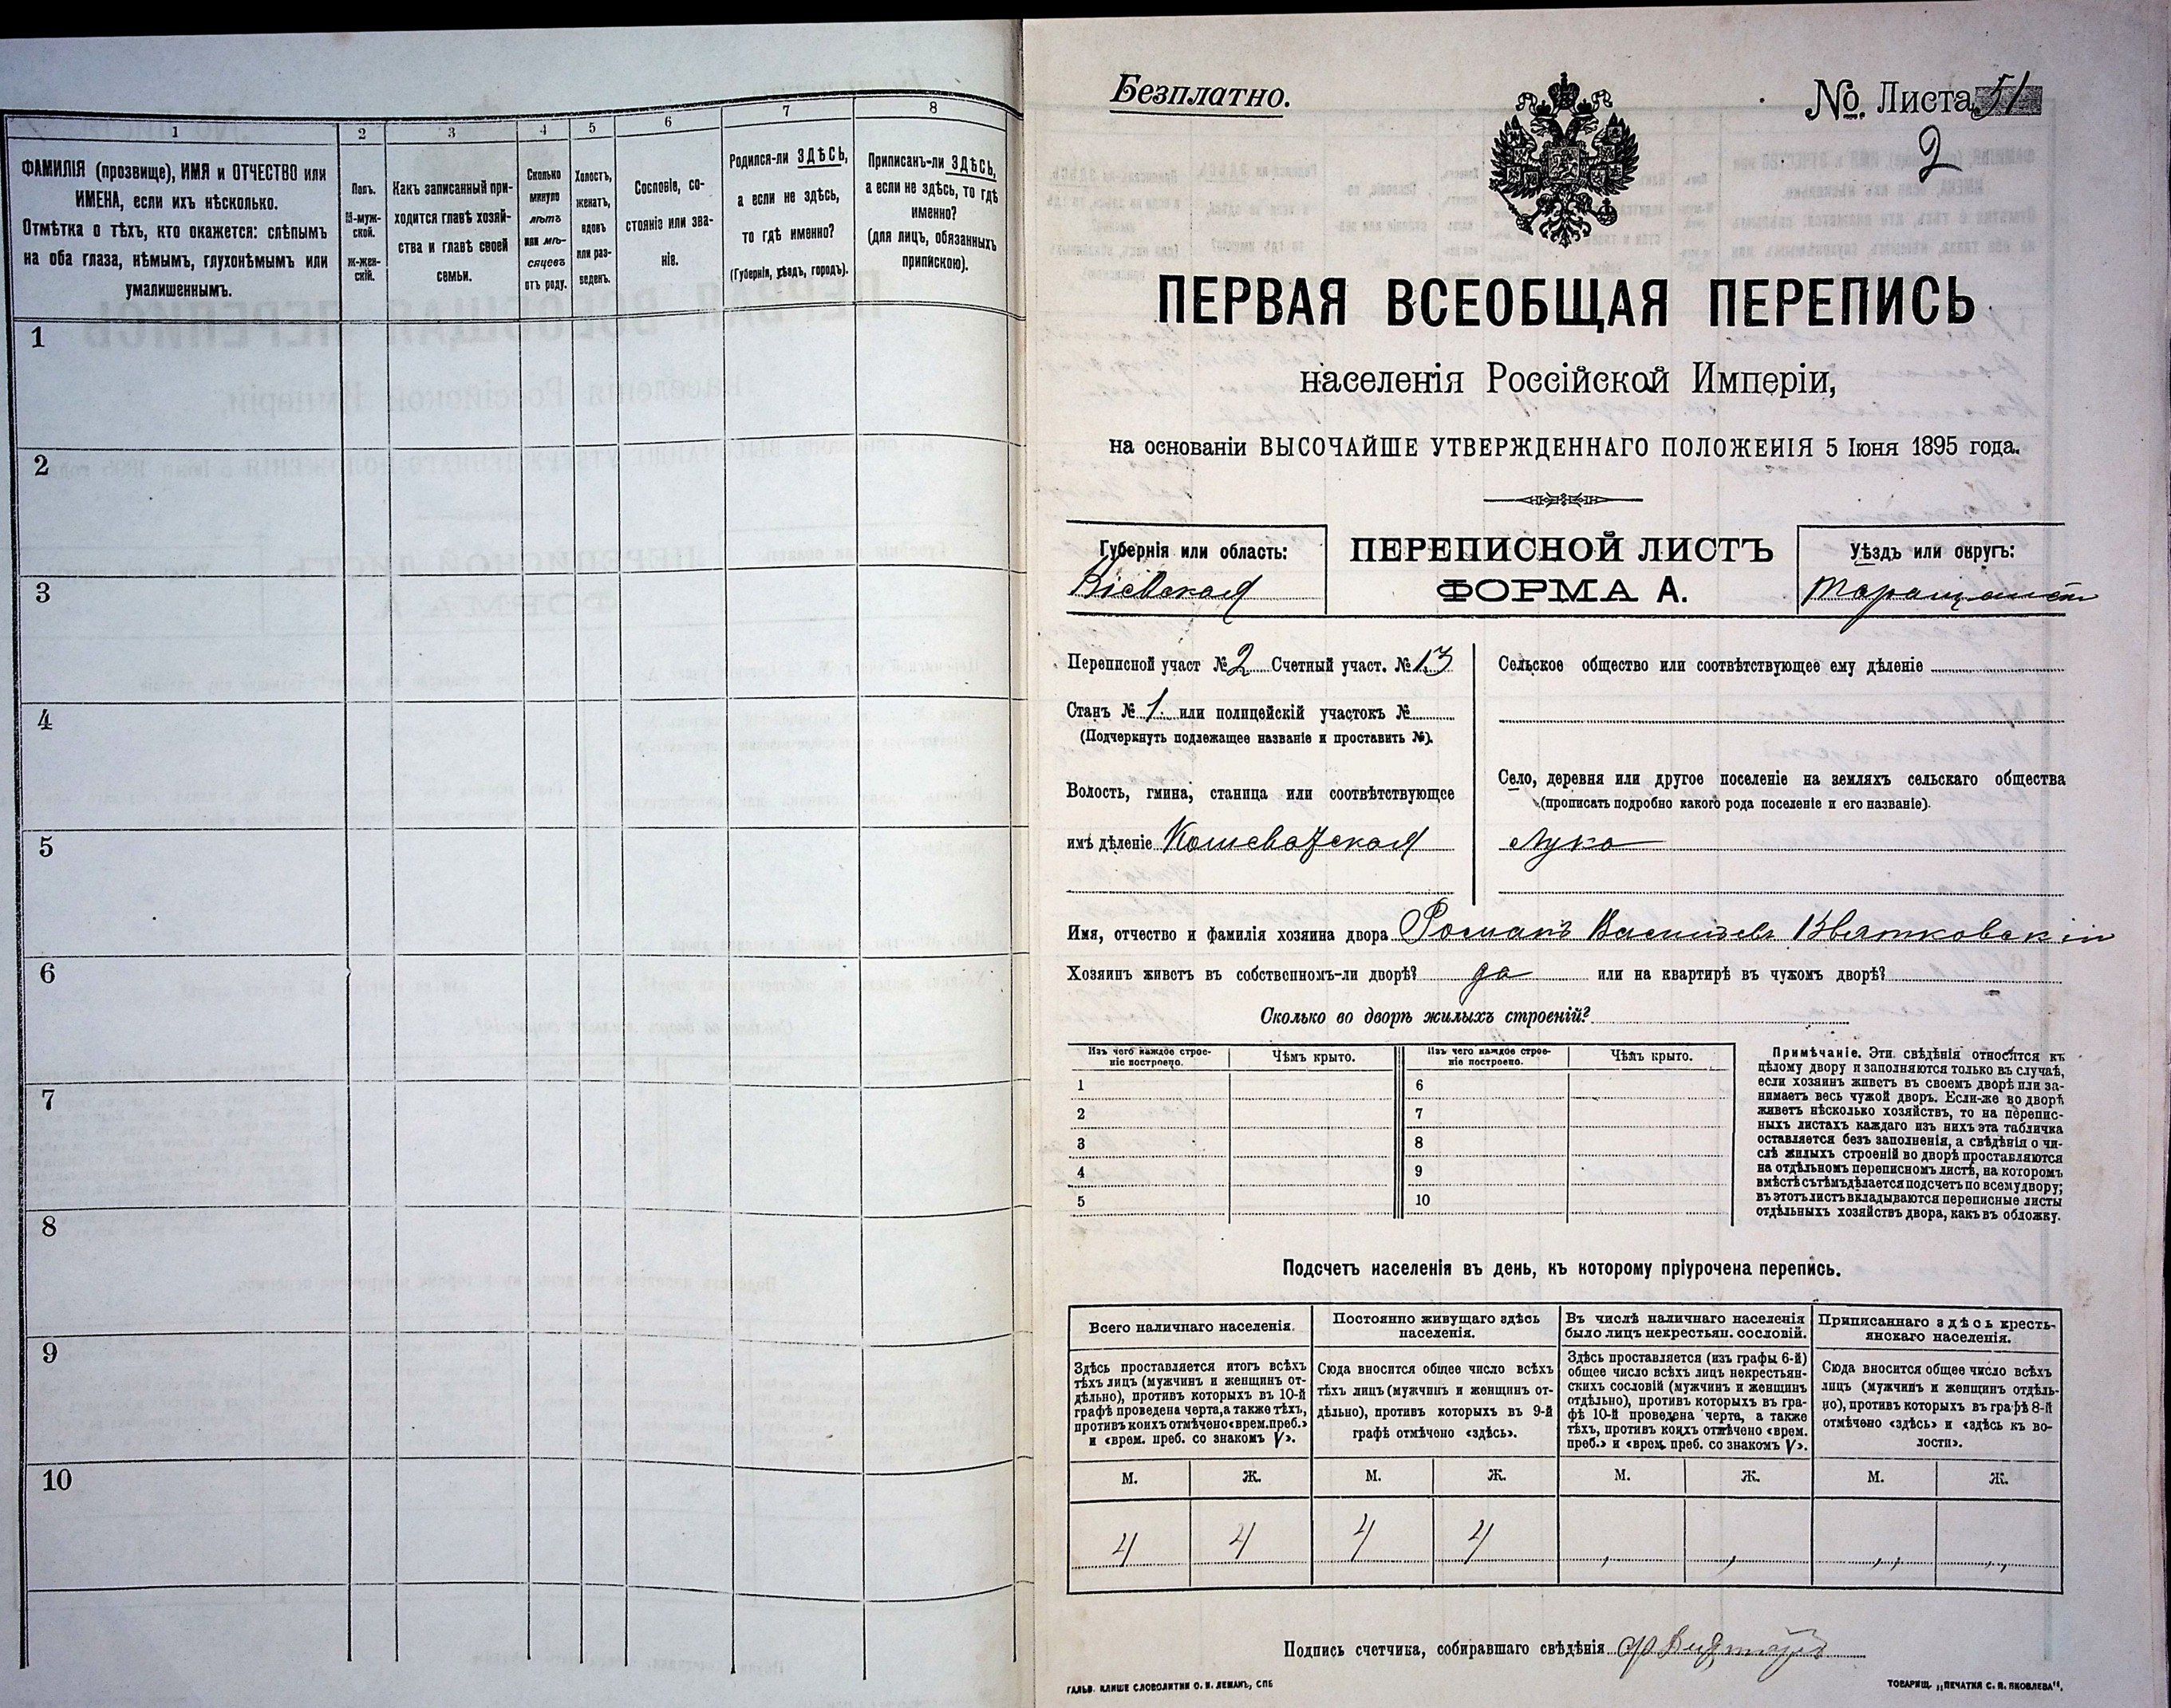 1
2
3
4
5
6
7
8
ФАМИЛІЯ (прозвище), ИМЯ и ОТЧЕСТВО или
ИМЕНА, если ихъ нѣсколько.
Отмѣтка о тѣхъ, кто окажется: слѣпымъ
на оба глаза, нѣмымъ, глухонѣмымъ или
умалишеннымъ.
Полъ.
М-муж-
ской.
Ж-жен-
скій.
Какъ записанный при-
ходится главѣ хозяй-
ства и главѣ своей
семьи.
Сколько
минуло
лѣтъ
или мѣ-
сяцевъ
отъ роду.
Холостъ,
женатъ,
вдовъ
или раз-
веденъ.
Сословіе, со-
стояніе или зва-
ніе.
Родился-ли ЗДѢСЬ,
а если не здѣсь,
то гдѣ именно?
(Губернія, уѣздъ, городъ).
Приписанъ-ли ЗДѢСЬ,
а если не здѣсь, то гдѣ
именно?
(для лицъ, обязанныхъ
припискою).
1
2
3
4
5
6
7
8
9
10
Безплатно.
№ Листа 51
2
ПЕРВАЯ ВСЕОБЩАЯ ПЕРЕПИСЬ
населенія Россійской Имперіи,
на основаніи ВЫСОЧАЙШЕ УТВЕРЖДЕННАГО ПОЛОЖЕНІЯ 5 Іюня 1895 года.
Губернія или область:
Кіевская
ПЕРЕПИСНОЙ ЛИСТЪ
ФОРМА А.
Уѣздъ или округъ:
Переписной участ № 2 Счетный участ. № 13
Станъ № 1. или полицейскій участокъ №
(Подчеркнуть подлежащее названіе и проставить №).
Волость, гмина, станица или соотвѣтствующее
имъ дѣленіе Кошеватская
Сельское общество или соотвѣтствующее ему дѣленіе
Село, деревня или другое поселеніе на земляхъ сельскаго общества
(прописать подробно какого рода поселеніе и его названіе).
Лука
Имя, отчество и фамилія хозяина двора Романъ Васильевъ Квятковскій
Хозяинъ живетъ въ собственномъ-ли дворѣ? да или на квартирѣ въ чужомъ дворѣ?
Сколько во дворѣ жилыхъ строеній?
Изъ чего каждое строе-
ніе построено.
Чѣмъ крыто.
Изъ чего каждое строе-
ніе построено.
Чѣмъ крыто.
1
2
3
4
5
6
7
8
9
10
Примѣчаніе. Эти свѣдѣнія относятся къ
цѣлому двору и заполняются только въ случаѣ,
если хозяинъ живетъ въ своемъ дворѣ или за-
нимаетъ весь чужой дворъ. Если-же во дворѣ
живетъ нѣсколько хозяйствъ, то на перепис-
ныхъ листахъ каждаго изъ нихъ эта табличка
оставляется безъ заполненія, а свѣдѣнія о чи-
слѣ жилыхъ строеній во дворѣ проставляются
на отдѣльномъ переписномъ листѣ, на которомъ
вмѣстѣ съ тѣмъ дѣлается подсчетъ по всему двору;
въ этотъ листъ вкладываются переписные листы
отдѣльныхъ хозяйствъ двора, какъ въ обложку.
Подсчетъ населенія въ день, къ которому пріурочена перепись.
Всего наличнаго населенія.
Здѣсь проставляется итогъ всѣхъ
тѣхъ лицъ (мужчинъ и женщинъ от-
дѣльно), противъ которыхъ въ 10-й
графѣ проведена черта, а также тѣхъ,
противъ коихъ отмѣчено «врем. преб.»
и «врем. преб. со знакомъ V».
Постоянно живущаго здѣсь
населенія.
Сюда вносится общее число всѣхъ
тѣхъ лицъ (мужчинъ и женщинъ от-
дѣльно), противъ которыхъ въ 9-й
графѣ отмѣчено «здѣсь».
Въ числѣ наличнаго населенія
было лицъ некрестьян. сословій.
Здѣсь проставляется (изъ графы 6-й)
общее число всѣхъ лицъ некрестьян-
скихъ сословій (мужчинъ и женщинъ
отдѣльно), противъ которыхъ въ гра-
фѣ 10-й проведена черта, а также
тѣхъ, противъ коихъ отмѣчено «врем.
преб.» и «врем. преб. со знакомъ V».
Приписаннаго здѣсь кресть-
янскаго населенія.
Сюда вносится общее число всѣхъ
лицъ (мужчинъ и женщинъ отдѣль-
но), противъ которыхъ въ графѣ 8-й
отмѣчено «здѣсь» и «здѣсь къ во-
лости».
М. Ж. М. Ж. М. Ж. М. Ж.
4 4 4 4
Подпись счетчика, собиравшаго свѣдѣнія
ГАЛЬВ. КЛИШЕ СЛОВОЛИТНИ О. И. ЛЕМАНЪ, СПБ
ТОВАРИЩ. „ПЕЧАТНЯ С. П. ЯКОВЛЕВА".